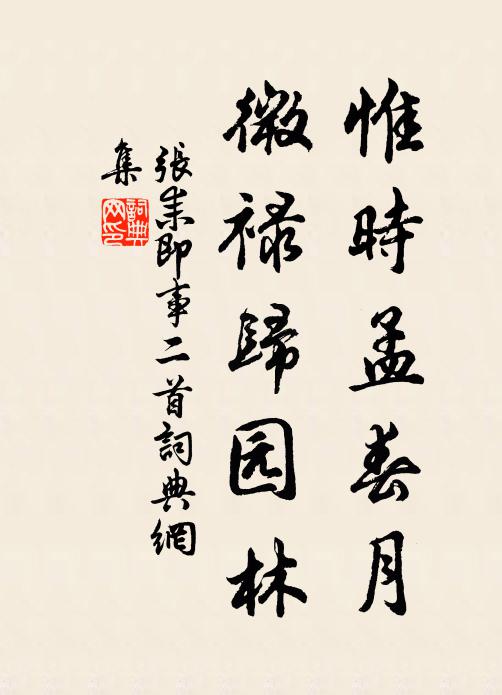 惟時孟春月
微祿歸园林
張耒即事二首詞典網
集
詞典
网印